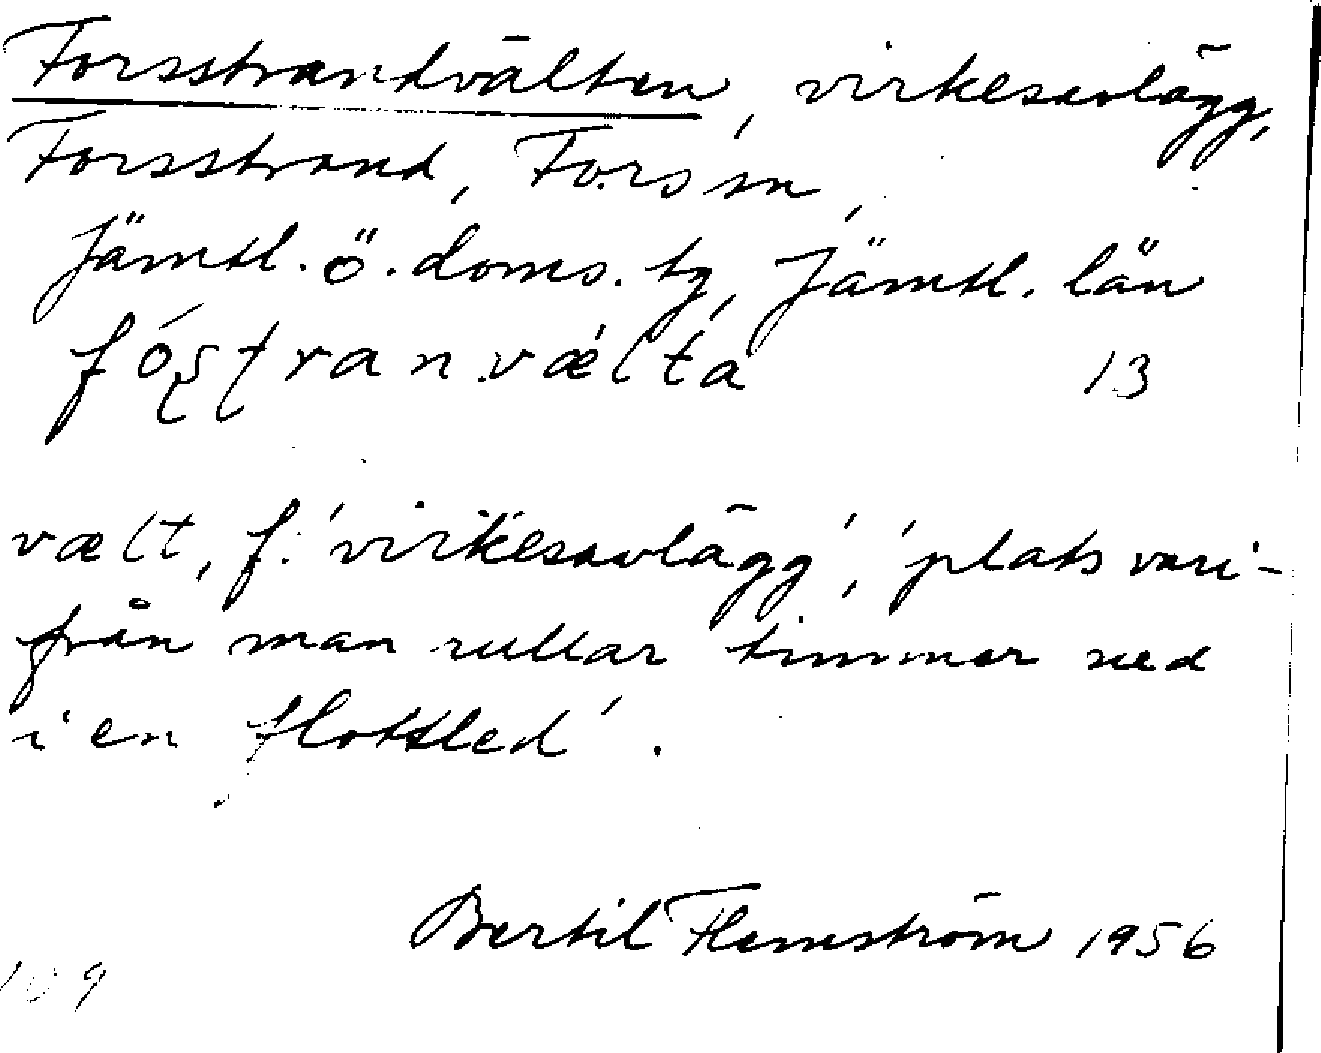 Forsstrandvälten, virkesavlägg,
Forsstrand, Fors sn,
Jämtl. ö. doms. tg, Jämtl. län
fóștranvælta 13
vælt, f. 'virkesavlägg', 'plats vari-
från man rullar timmer ned
i en flottled'.
Bertil Flemström 1956
109